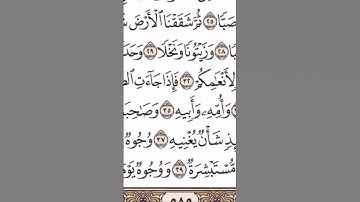 صَبًّا ٢٥ ثُمَّ شَقَقْنَا ٱلْأَرْضَ
٢٨ وَزَيْتُونًا وَنَخْلًا ٢٩ وَحَدَ
لِأَنْعَٰمِكُمْ ٣٢ فَإِذَا جَآءَتِ ٱلصَّ
وَأُمِّهِۦ وَأَبِيهِ ٣٥ وَصَٰحِبَ
ئِذٍ شَأْنٌ يُغْنِيهِ ٣٧ وُجُوهٌ
مُّسْتَبْشِرَةٌ ٣٩ وَوُجُوهٌ يَوْمَ
٥٨٥